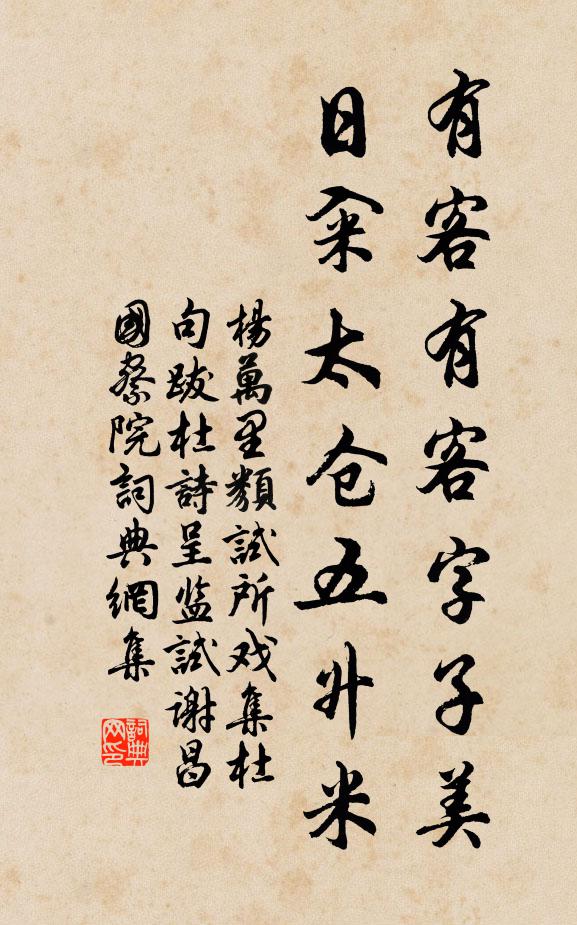 有客有客字子美
日籴太仓五升米
楊萬里類試所戏集杜
句跋杜詩呈监試謝昌
國察院詞典網集
詞典
网印